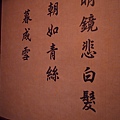 明鏡悲白髮
朝如青絲
暮成雪